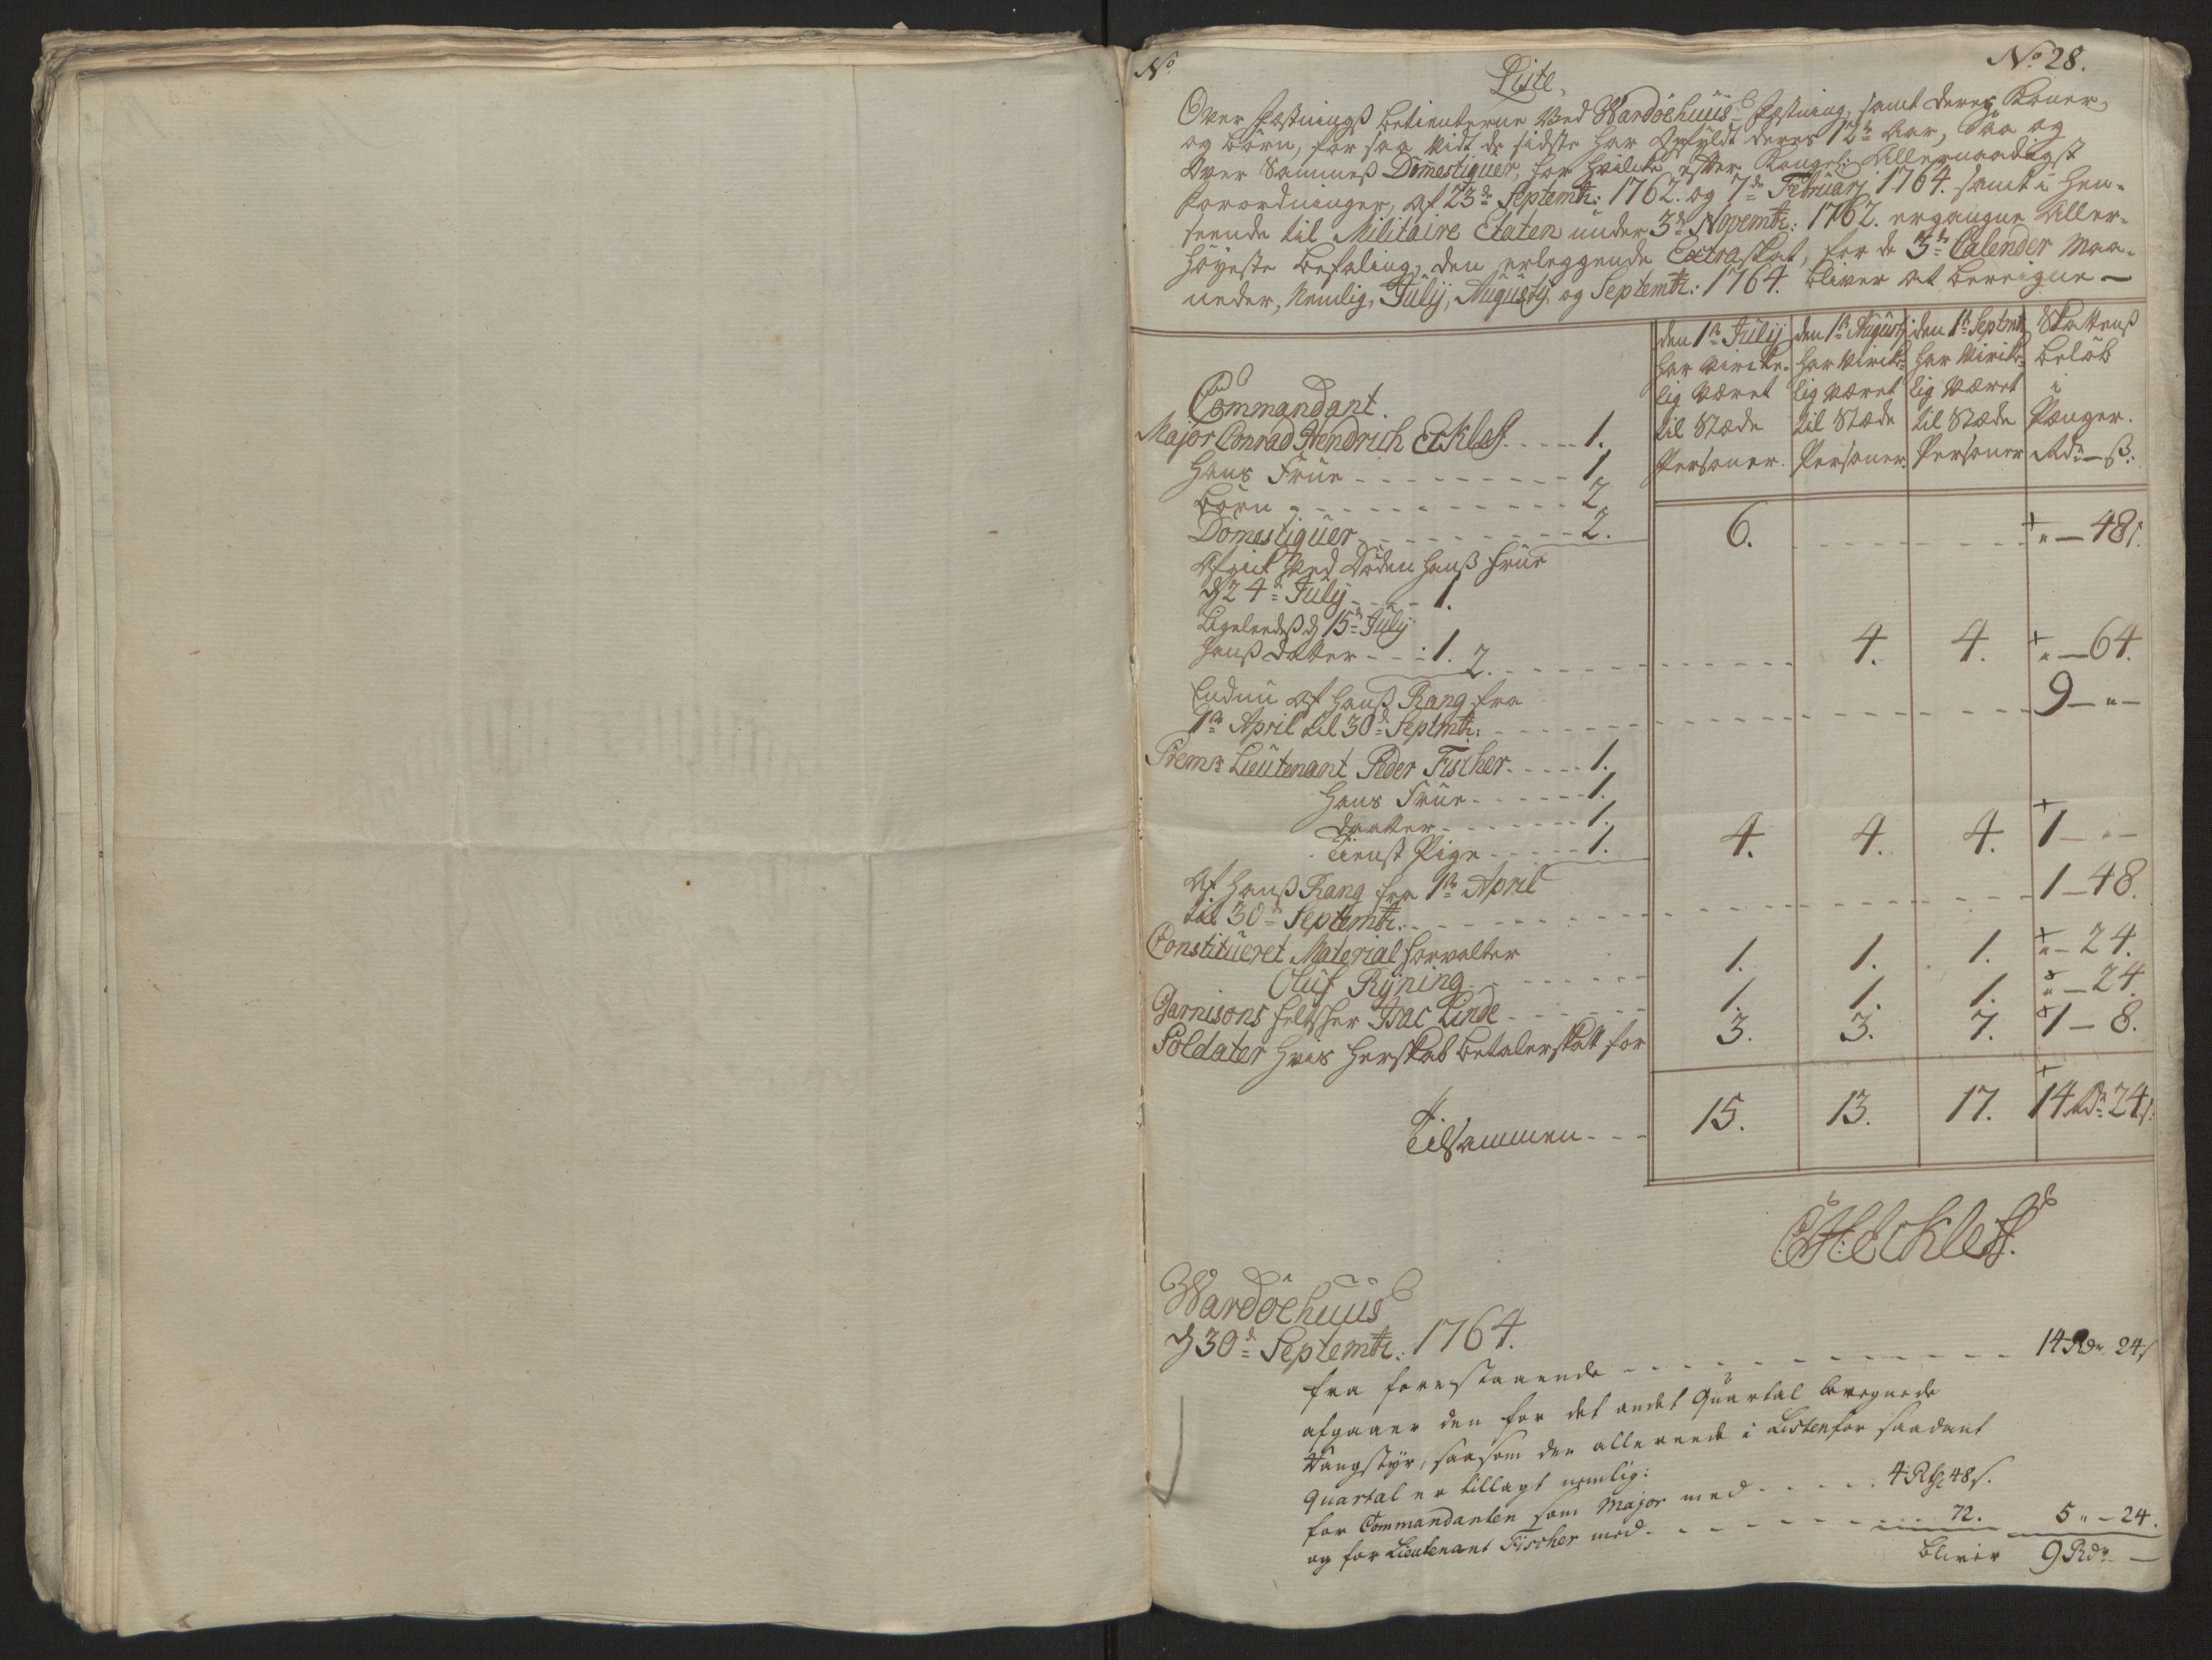 No
No 28.
Liste,
Over Fæstningß betienterne Ved Wardöehuus Fæstning, samt deres Koner,
og börn, for saa vidt de sidste har Opfyldt deres 12te Aar, Saa og
Over Sammeß Domestiquer, for hvilcke efter Kongel: Allernaadigst
Forordninger, af 23de Septembr: 1762. og 7de Februarj 1764. samt i Hen-
seende til Militaire Etaten under 3de Novembr: 1762. ergangne Aller-
höyeste befaling, den erleggende Extraskat, for de 3de Calender Maa-
neder, Nemlig, Julij, Augustij, og Septembr: 1764. bliver at bereigne —
den 1te Julij den 1te Augustj den 1te Septmbr Skattenß
har virck- har virck- har virck- belöb
lig været lig været lig været i
til Stæde til Stæde til Stæde Penger.
Personer. Personer. Personer Rdr — ß:
Commandant.
Major Conrad Hendrich Ecklef - - - - 1.
Hans Frue - - - - - - - - - 1.
börn - - - - - - - - - - - 2.
Domestiquer - - - - - - - - 2. 6. - - - - - - + " — 48ß.
Afgik Ved Döden hanß Frue
d 24de Julij - - - 1.
Ligeleedeß d 15de Julij
hanß datter - - - 1. 2. - - - - - - - - 4. 4. + " — 64.
Endnu af hanß Rang fra
1te April til 30de Septmbr: - - - - - - - - - - - 9 — " —
Premr Lieutenant Peder Fischer - - - - 1.
Hans Frue - - - - - - 1.
daatter - - - - - - - 1.
Tienst Pige - - - - - 1. 4. 4. 4. + 1 — " —
Af hanß Rang fra 1te April
til 30de Septembr. - - - - - - - - - - - - - 1 — 48.
Constitueret Material forvalter
Oluf Ryning - - - - - - 1. 1. 1. + " — 24.
Garnisons feltskier Isac Linde - - - - - 1. 1. 1. " — 24.
Soldater hvis Herskab betaler skatt for 3. 3. 7. + 1 — 8.
Tilsammen - - - 15. 13. 17. + 14 Rdr 24ß:
CHEcklef.
Wardöehuus
d 30de Septembr: 1764.
fra forestaaende - - - - - - - - - - - 14 Rdr 24ß
afgaaer den for det andet Quartal beregnede
Rangstyr, saasom den allereede i Listen for saadant
Quartal er tillagt nemlig:
for Commandanten som Major med - - - - - 4 Rdr 48ß.
og for Lieutenant Fischer med - - - - - - 72. 5 " — 24.
bliver 9 Rdr —